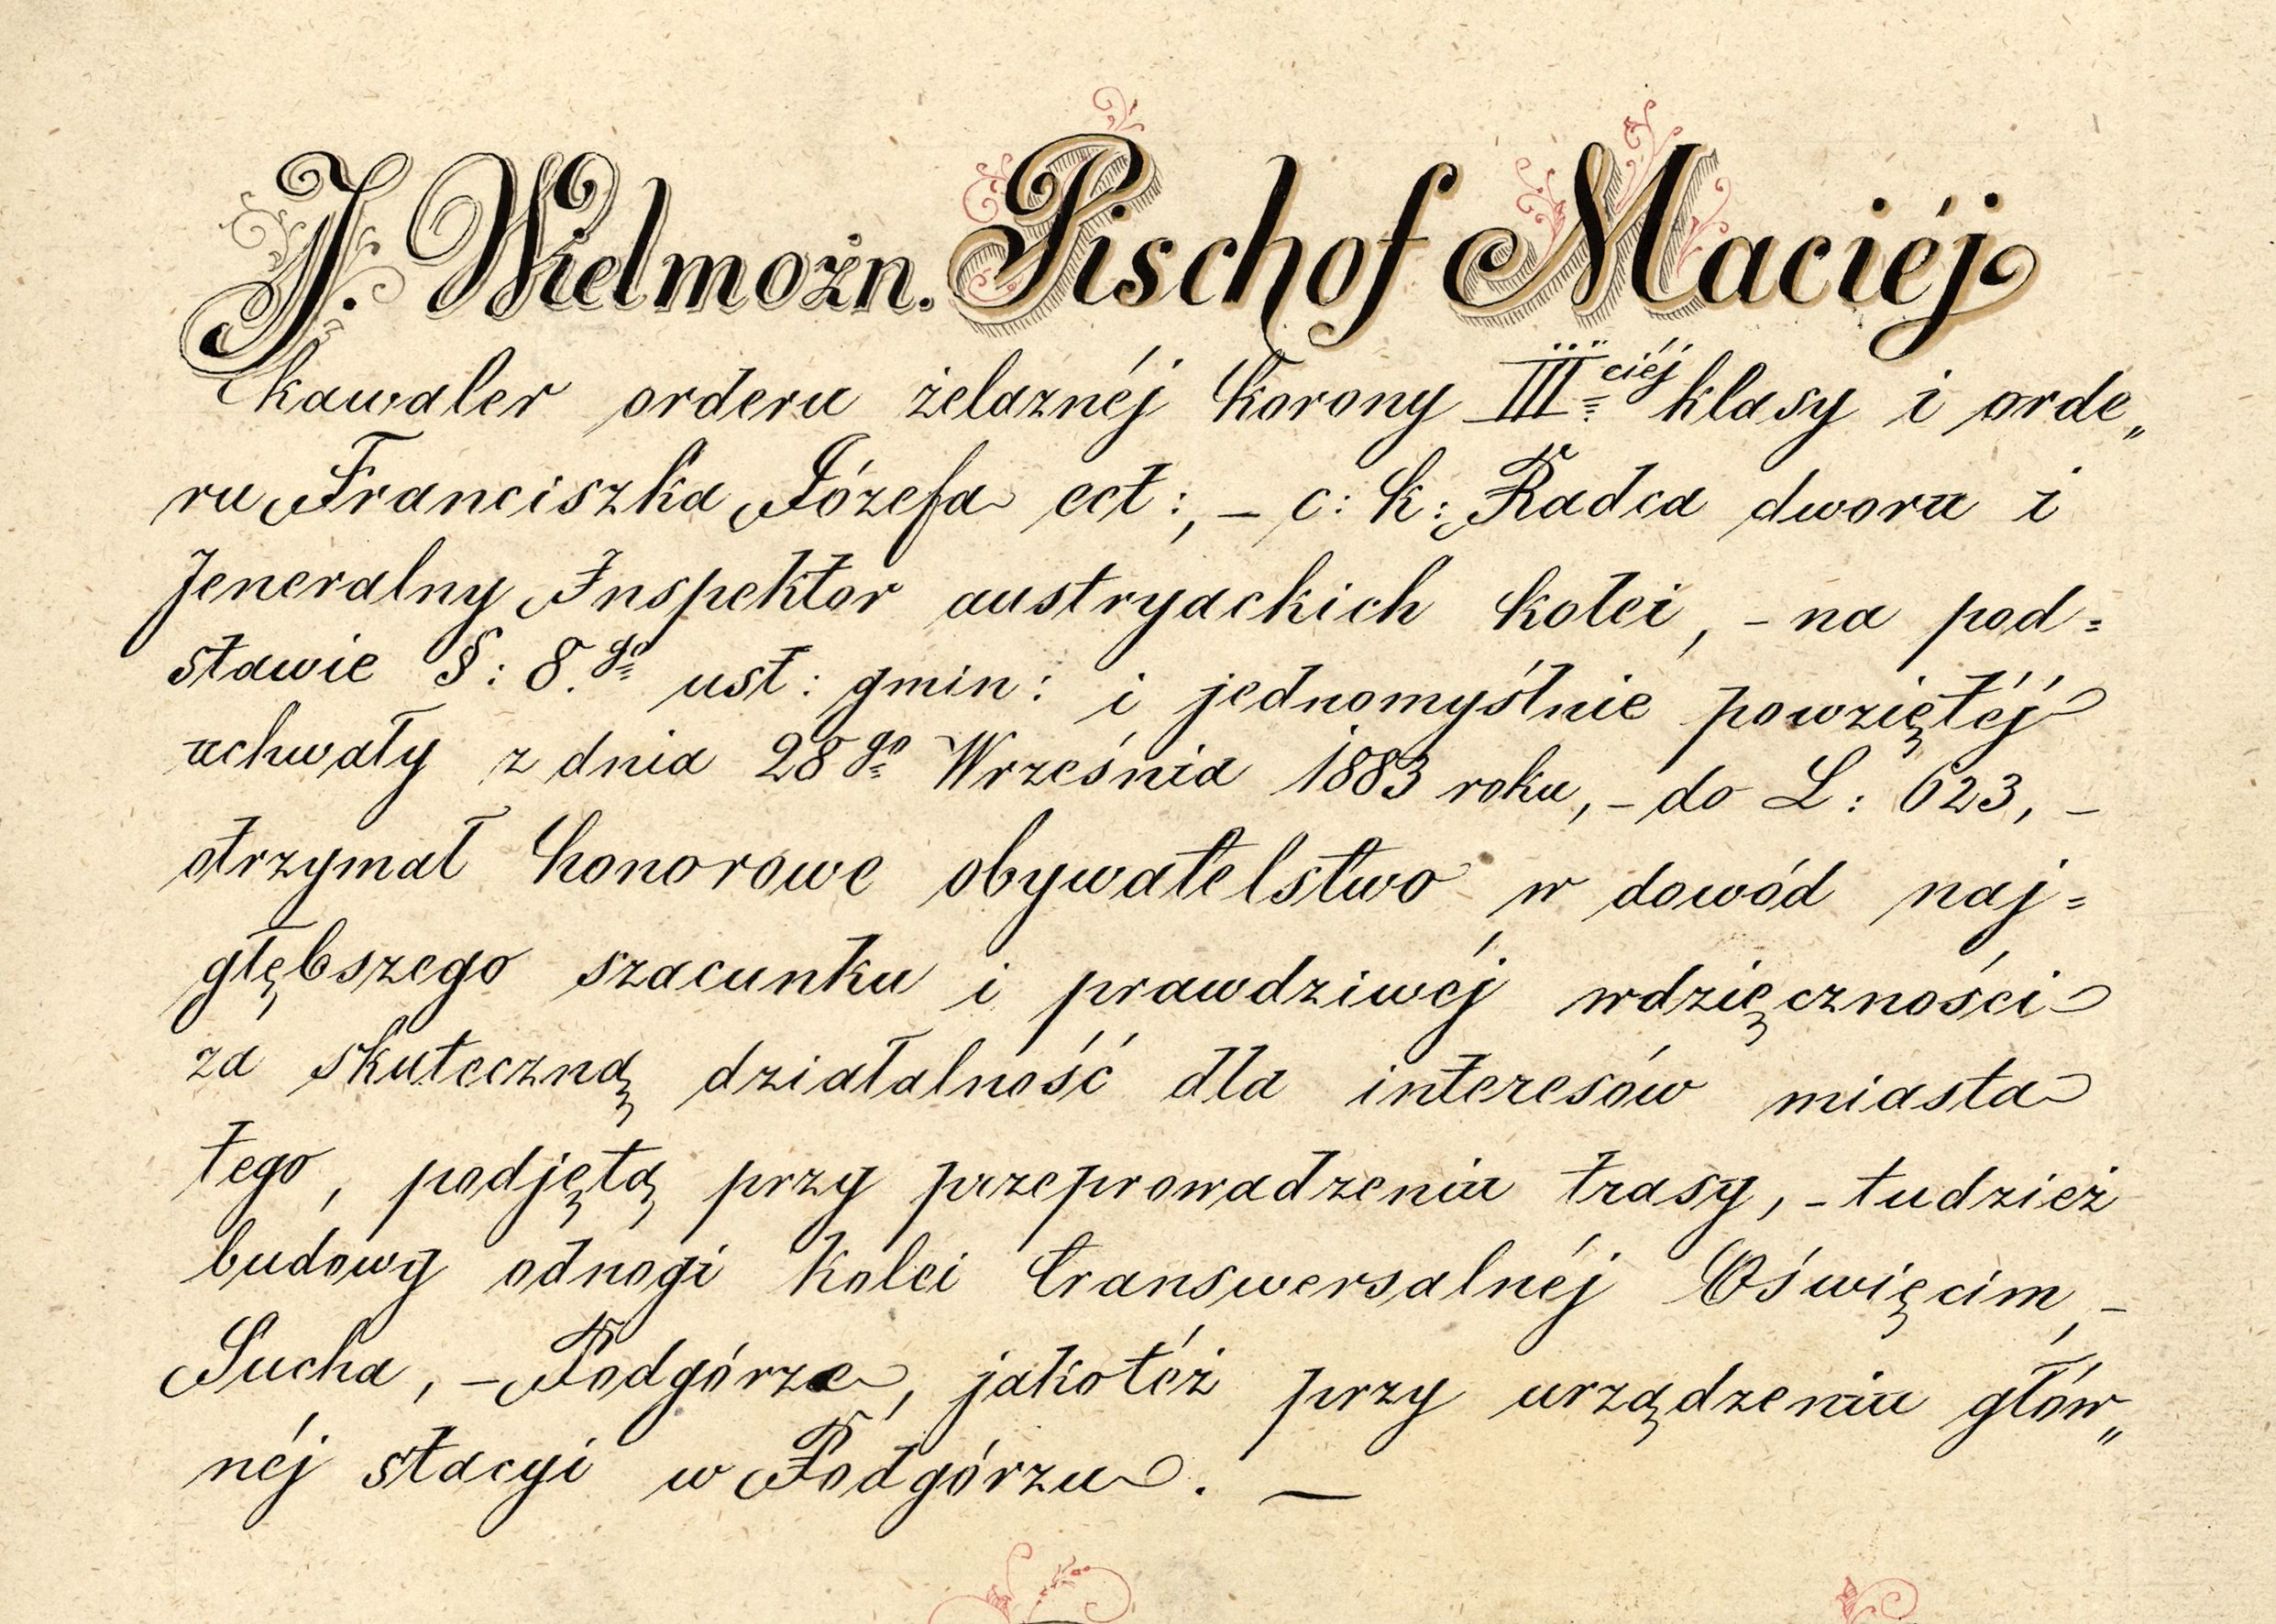 J. Wielmożn. Pischof Maciéj
kawaler orderu żelaznéj korony III ciéj klasy i orde„
ru Franciszka Józefa ect:, – c: k: Radca dworu i
Jeneralny Inspektor austryackich kolei, – na pod=
stawie §: 8.go ust: gmin: i jednomyślnie powziętéj
uchwały z dnia 28go Września 1883 roku, – do L: 623, –
otrzymał honorowe obywatelstwo w dowód naj=
głębszego szacunku i prawdziwéj wdzięczności
za skuteczną działalność dla interesów miasta
tego, podjętą przy przeprowadzeniu trasy, – tudzież
budowy odnogi kolei transwersalnéj Oświęcim, –
Sucha, – Podgórze, jakotéż przy urządzeniu głów„
néj stacyi w Podgórzu. —